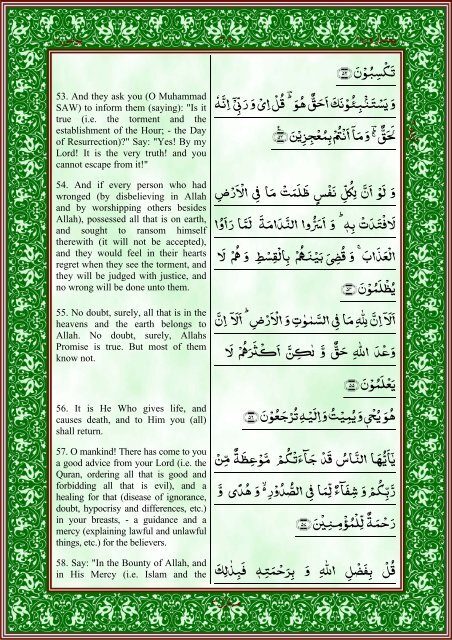 53. And they ask you (O Muhammad
SAW) to inform them (saying): "Is it
true (i.e. the torment and the
establishment of the Hour; - the Day
of Resurrection)?" Say: "Yes! By my
Lord! It is the very truth! and you
cannot escape from it!"
54. And if every person who had
wronged (by disbelieving in Allah
and by worshipping others besides
Allah), possessed all that is on earth,
and sought to ransom himself
therewith (it will not be accepted),
and they would feel in their hearts
regret when they see the torment, and
they will be judged with justice, and
no wrong will be done unto them.
55. No doubt, surely, all that is in the
heavens and the earth belongs to
Allah. No doubt, surely, Allahs
Promise is true. But most of them
know not.
56. It is He Who gives life, and
causes death, and to Him you (all)
shall return.
57. O mankind! There has come to you
a good advice from your Lord (i.e. the
Quran, ordering all that is good and
forbidding all that is evil), and a
healing for that (disease of ignorance,
doubt, hypocrisy and differences, etc.)
in your breasts, - a guidance and a
mercy (explaining lawful and unlawful
things, etc.) for the believers.
58. Say: "In the Bounty of Allah, and
in His Mercy (i.e. Islam and the
تَكْسِبُوْنَ ﴿۵۲﴾
وَ يَسْتَنْۢبِـُٔوْنَكَ اَحَقٌّ هُوَ ؕ قُلْ اِیْ وَ رَبِّیْۤ اِنَّهٗ
لَحَقٌّ ؔۚ وَ مَاۤ اَنْتُمْ بِمُعْجِزِيْنَ ﴿۵۳﴾
وَ لَوْ اَنَّ لِكُلِّ نَفْسٍ ظَلَمَتْ مَا فِی الْاَرْضِ
لَافْتَدَتْ بِهٖ ؕ وَ اَسَرُّوا النَّدَامَةَ لَمَّا رَاَوُا
الْعَذَابَ ۚ وَ قُضِیَ بَيْنَهُمْ بِالْقِسْطِ وَ هُمْ لَا
يُظْلَمُوْنَ ﴿۵۴﴾
اَلَاۤ اِنَّ لِلّٰهِ مَا فِی السَّمٰوٰتِ وَ الْاَرْضِ ؕ اَلَاۤ اِنَّ
وَعْدَ اللّٰهِ حَقٌّ وَّ لٰكِنَّ اَكْثَرَهُمْ لَا
يَعْلَمُوْنَ ﴿۵۵﴾
هُوَ يُحْیٖ وَ يُمِيْتُ وَ اِلَيْهِ تُرْجَعُوْنَ ﴿۵۶﴾
يٰۤاَيُّهَا النَّاسُ قَدْ جَآءَتْكُمْ مَّوْعِظَةٌ مِّنْ
رَّبِّكُمْ وَ شِفَآءٌ لِّمَا فِی الصُّدُوْرِ ۙ۬ وَ هُدًی وَّ
رَحْمَةٌ لِّلْمُؤْمِنِيْنَ ﴿۵۷﴾
قُلْ بِفَضْلِ اللّٰهِ وَ بِرَحْمَتِهٖ فَبِذٰلِكَ